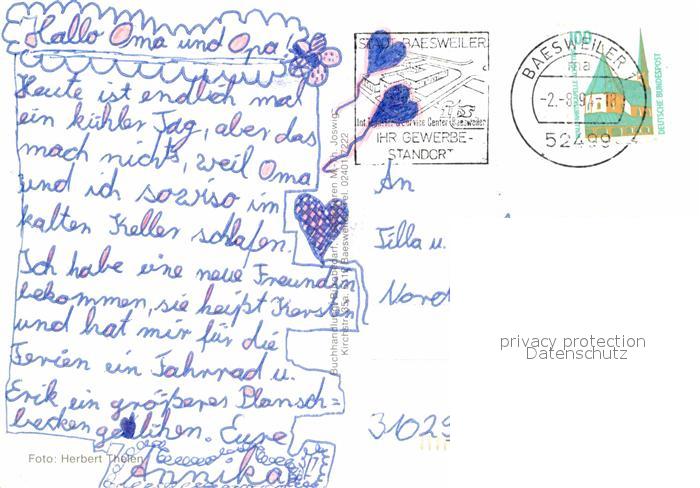 Hallo Oma und Opa!
Heute ist endlich mal
ein kühler Tag, aber das
mach nichts, weil Oma
und ich sowiso im
kalten Keller schlafen.
Ich habe eine neue Freundin
bekommen, sie heißt Kersten
und hat mir für die
Ferien ein Fahrrad u.
Erik ein größeres Plansch=
becken geliehen. Eure
Annika
Foto: Herbert Thelen
STADT BAESWEILER
Int. Technologie- & Service Center Baesweiler
IHR GEWERBE-
STANDORT
BAESWEILER 1
-2.-8.97-18
52499
100
DEUTSCHE BUNDESPOST
An
Tilla u.
Nord
31029
privacy protection
Datenschutz